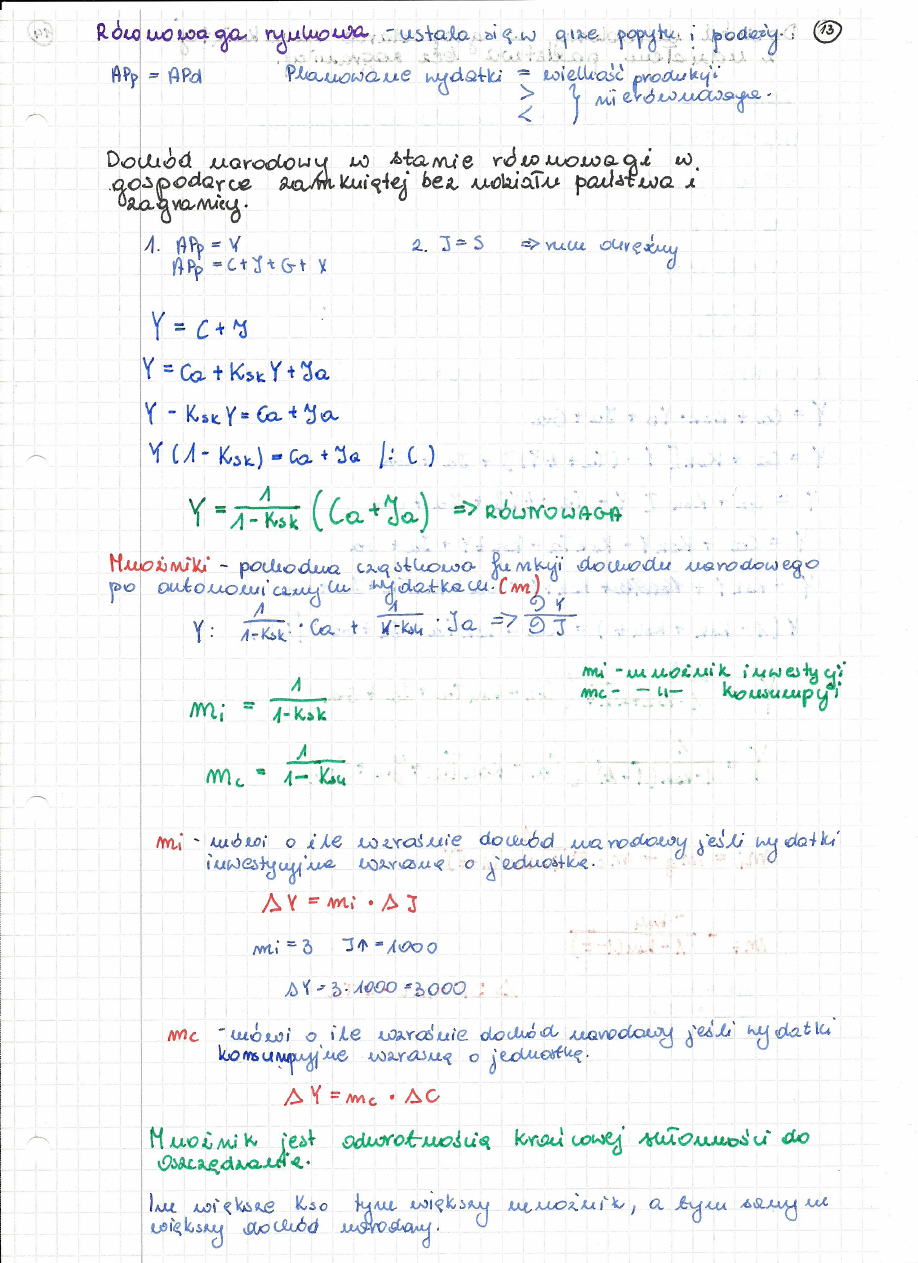 Równowaga rynkowa - ustala się w grze popytu i podaży. 13
APp = APd Planowane wydatki = wielkość produkcji
> } nierównowaga.
<
Dochód narodowy w stanie równowagi w
gospodarce zamkniętej bez udziału państwa i
zagranicy.
1. APp = Y 2. J = S => ruch okrężny
APp = C + J + G + X
Y = C + J
Y = Ca + Ksk Y + Ja
Y - Ksk Y = Ca + Ja
Y (1 - Ksk) = Ca + Ja /: ( )
Y = 1/(1 - Ksk) (Ca + Ja) => RÓWNOWAGA
Mnożniki - pochodna cząstkowa funkcji dochodu narodowego
po autonomicznych wydatkach. (m)
Y: 1/(1-Ksk) · Ca + 1/(1-Ksk) · Ja => ∂Y/∂J
mi - mnożnik inwestycji
mc - -11- konsumpcji
mi = 1/(1-Ksk)
mc = 1/(1-Ksk)
mi - mówi o ile wzrośnie dochód narodowy jeśli wydatki
inwestycyjne wzrosną o jednostkę.
Δ Y = mi · Δ J
mi = 3 J↑ = 1000
ΔY = 3 · 1000 = 3000
mc - mówi o ile wzrośnie dochód narodowy jeśli wydatki
konsumpcyjne wzrosną o jednostkę.
Δ Y = mc · ΔC
Mnożnik jest odwrotnością krańcowej skłonności do
oszczędzania.
Im większe Kso tym większy mnożnik, a tym samym
większy dochód narodowy.